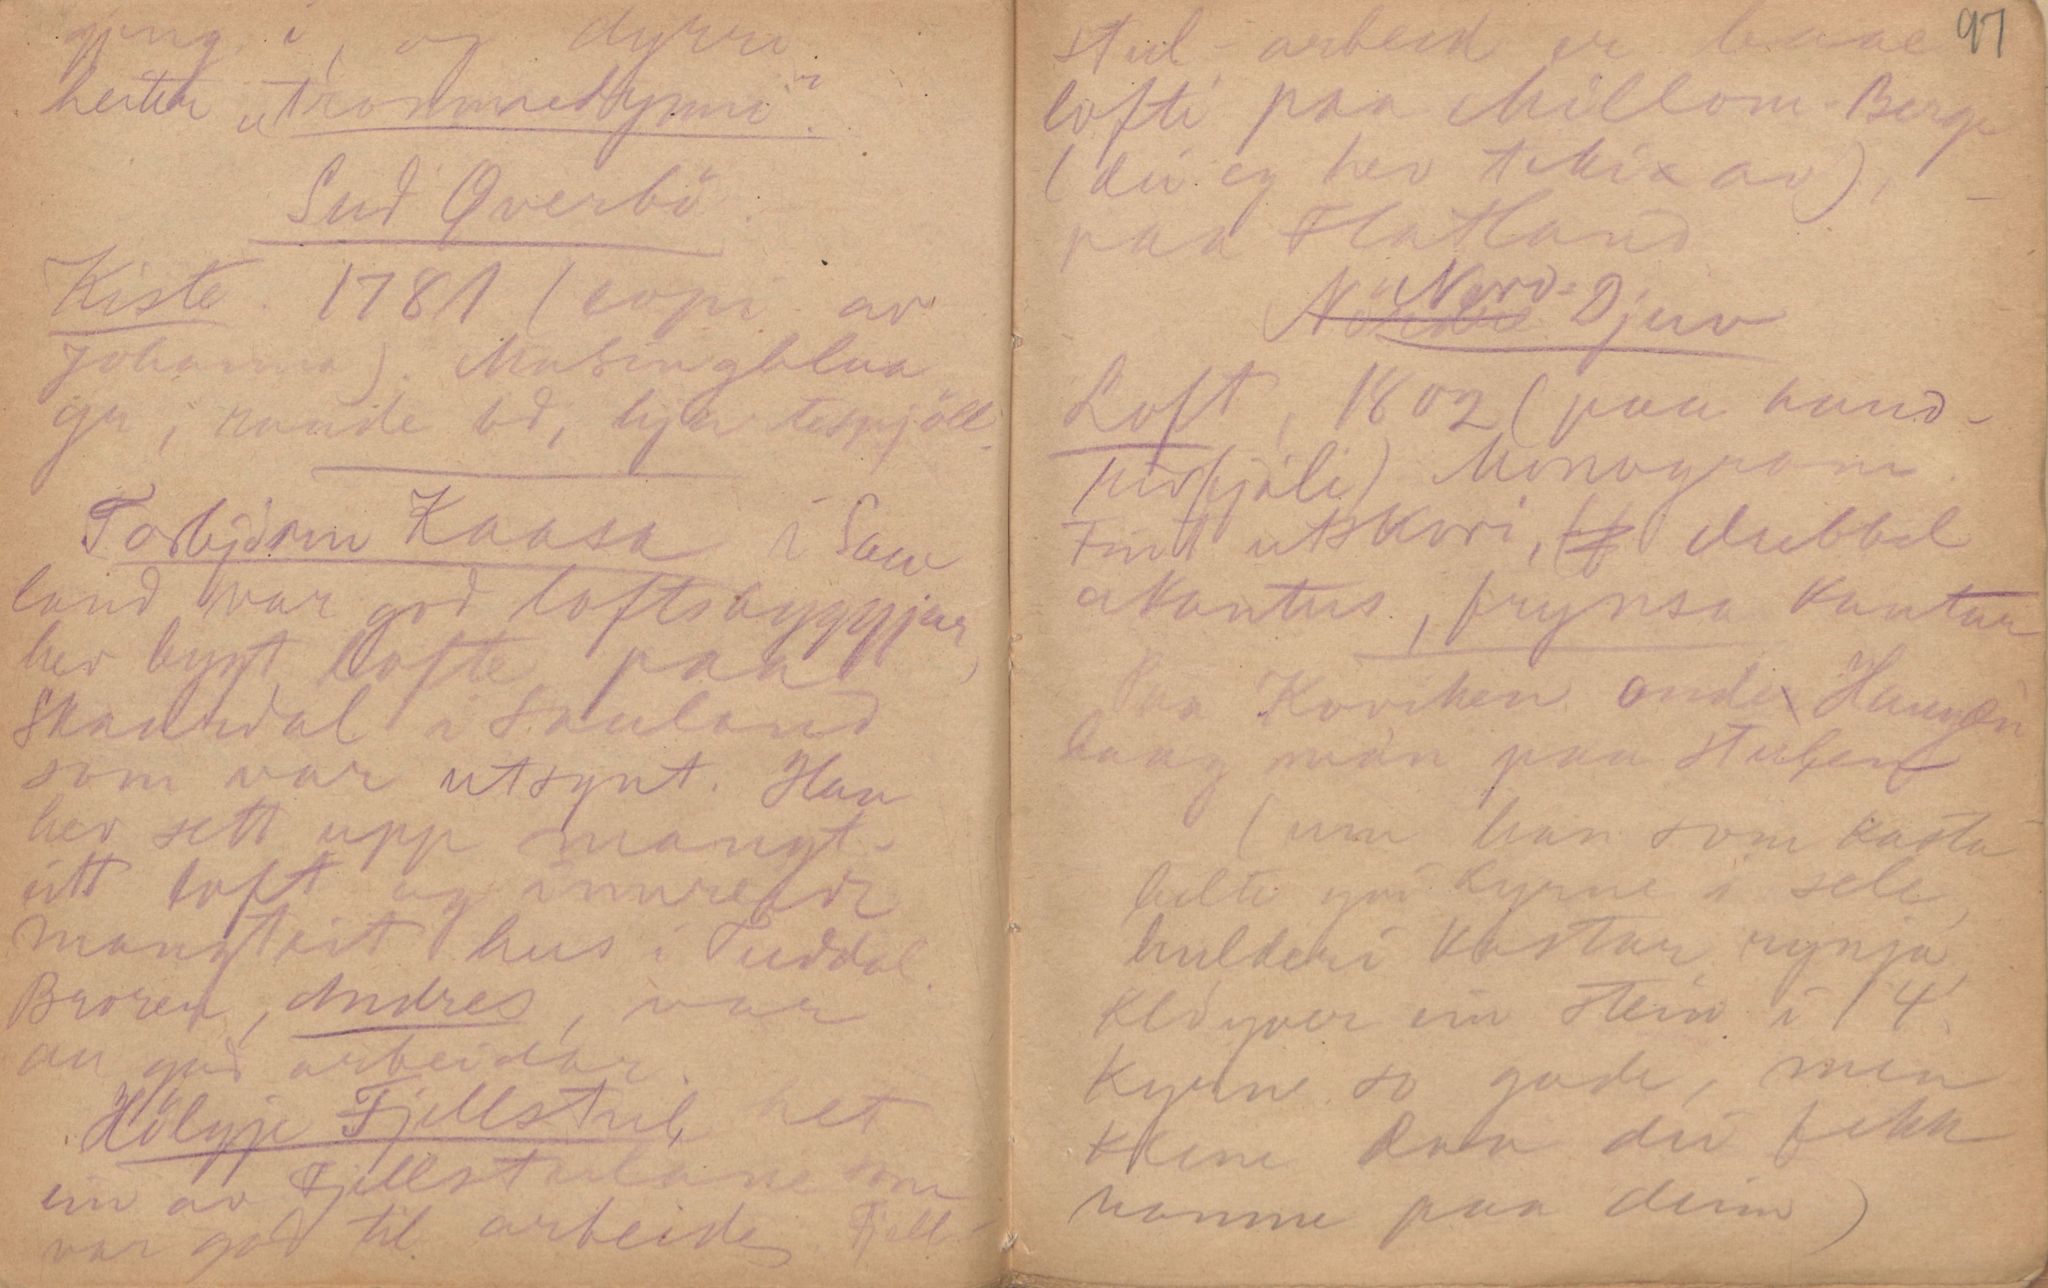 gjeng i, og dyrri
heiter „trommedynni".
Sud Qverbö.
Kiste. 1781 (copi av
Johanna). Messingblua
gu, runde bd, hjartespjöll
Torbjörn Kaasa i Sau
land var god loftsbyggjar,
hev bygt lofte paa
Skaardal i Sauland
som var utsynt. Han
hev sett upp mangt
eitt loft og innreidt
mangt eit hus i Tuddal.
Broren, Andres, var
au god arbeidar.
Hölgje Fjellstul, het
ein av Fjellstulane som
var god til arbeide, Fjell-
97
stul-arbeid er baae
lofti paa Millom-Berge
(dei eg hev teki av),
paa Flatland
Nord-Djuv
Loft, 1802 (paa hand-
Monogram
Fint utskori, dubbel
akantus, frynsa kantar
Paa Kovihen onde Haugen
laag mön paa stulen
(um han som kasta
belte yvi kyrne i sele,
hulderi kastar rynja,
klöyver ein stein i 14,
kyrne so gode, men
kleine daa dei fekk
namne paa deim)